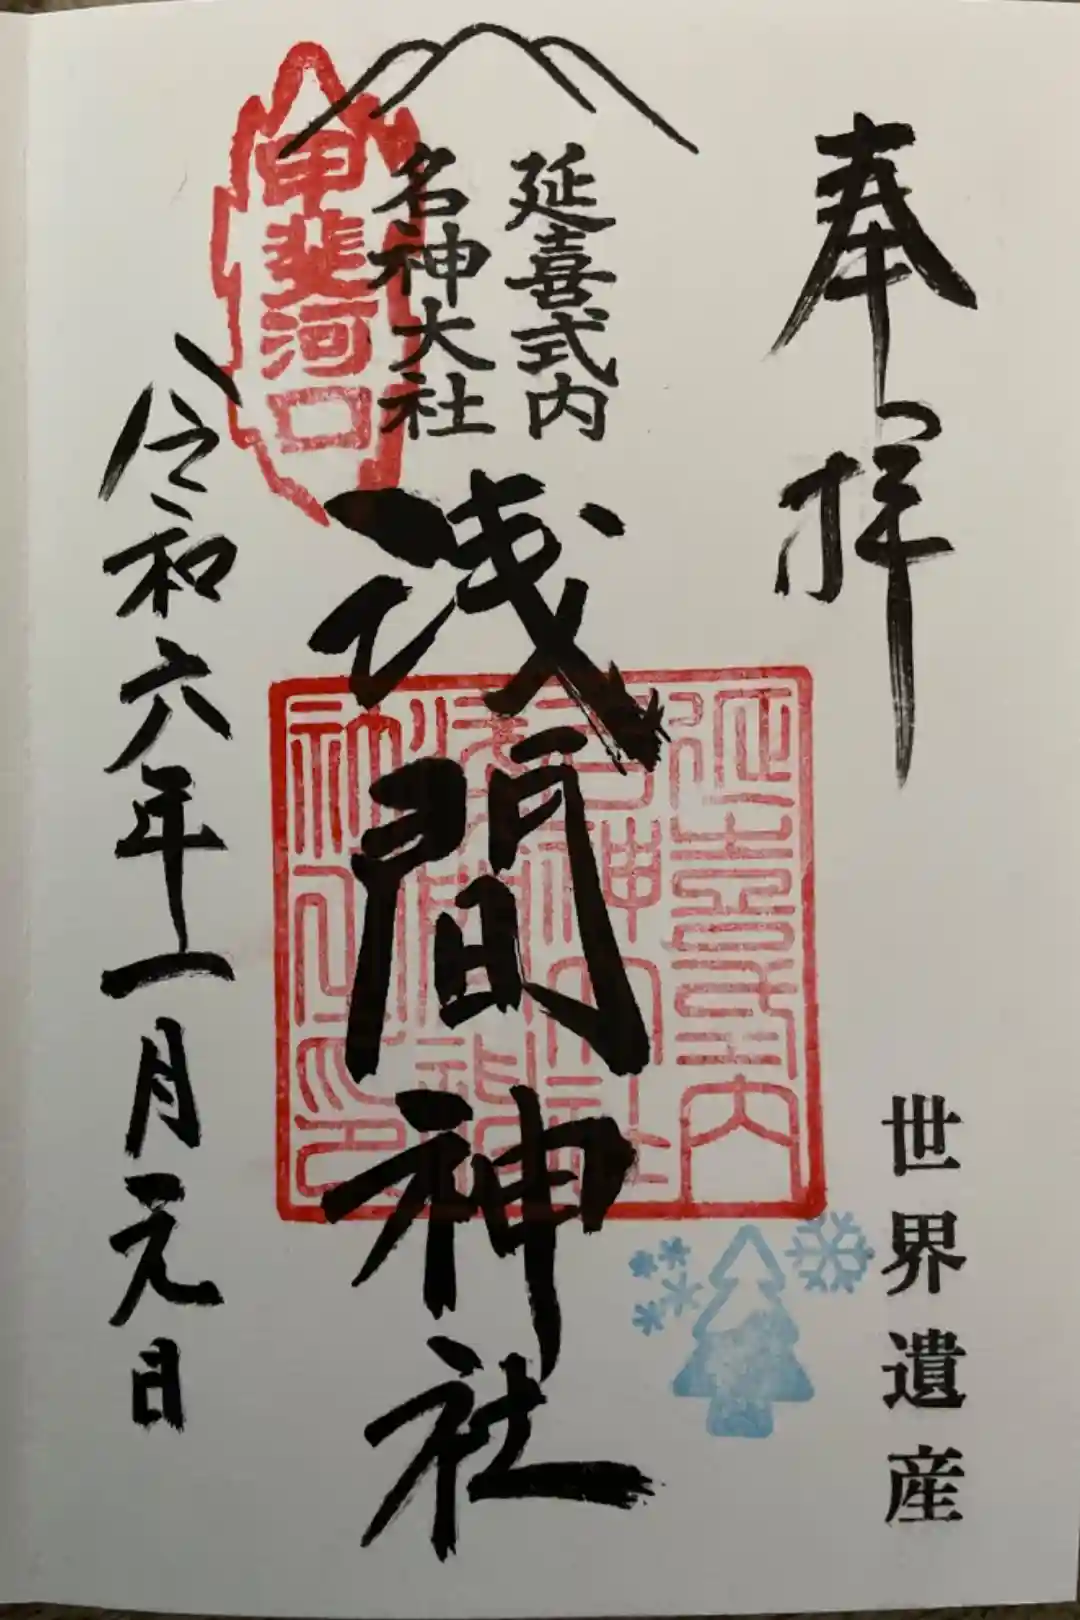 奉拝
世界遺産
延喜式内
名神大社
浅間神社
甲斐河口
延喜式内
名神大社
浅間神社
令和六年一月元日